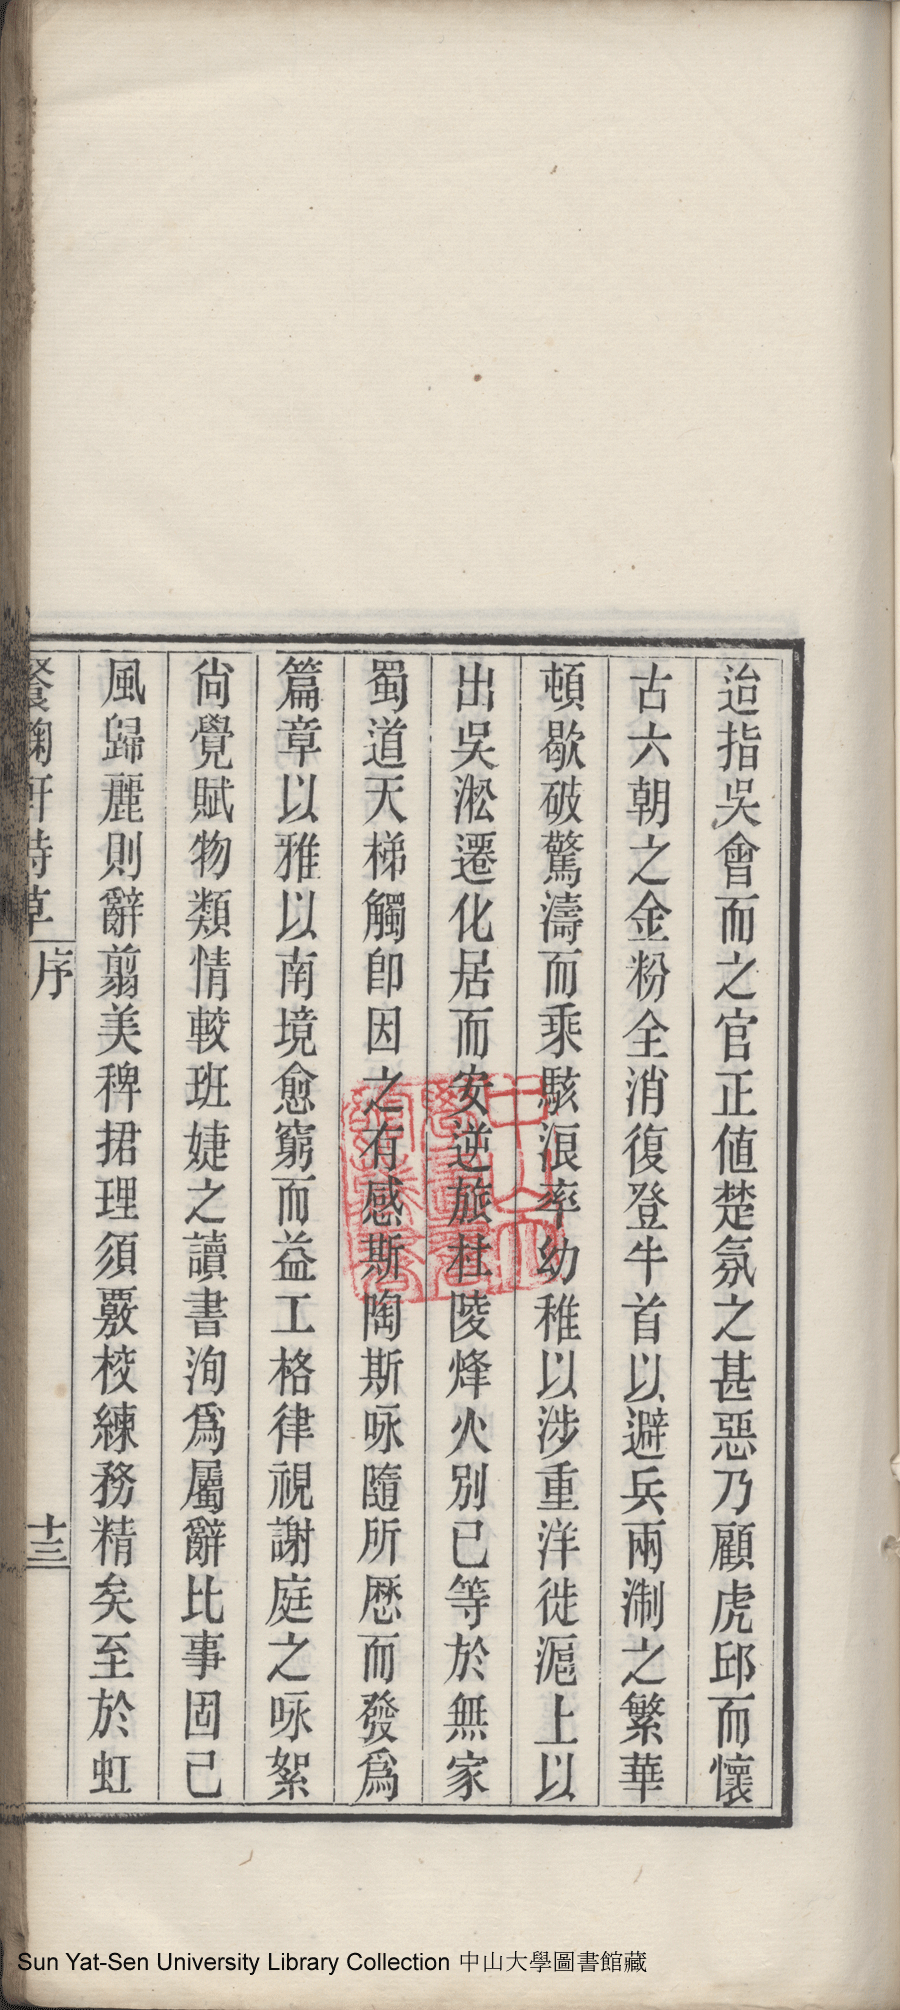 迨指吳會而之官正値楚氛之甚惡乃顧虎邱而懷
古六朝之金粉全消復登牛首以避兵兩淛之繁華
頓歇破驚濤而乘駭浪率幼稚以涉重洋徙滬上以
出吳淞遷化居而安逆旅杜陵烽火別已等於無家
蜀道天梯觸卽因之有感斯陶斯咏隨所歴而發爲
篇章以雅以南境愈窮而益工格律視謝庭之咏絮
尙覺賦物類情較班婕之讀書洵爲屬辭比事固已
風歸麗則辭翦美稗捃理須覈校練務精矣至於虹
餐菊軒詩草 序 十三
中山大學圖書館藏書
Sun Yat-Sen University Library Collection 中山大學圖書館藏